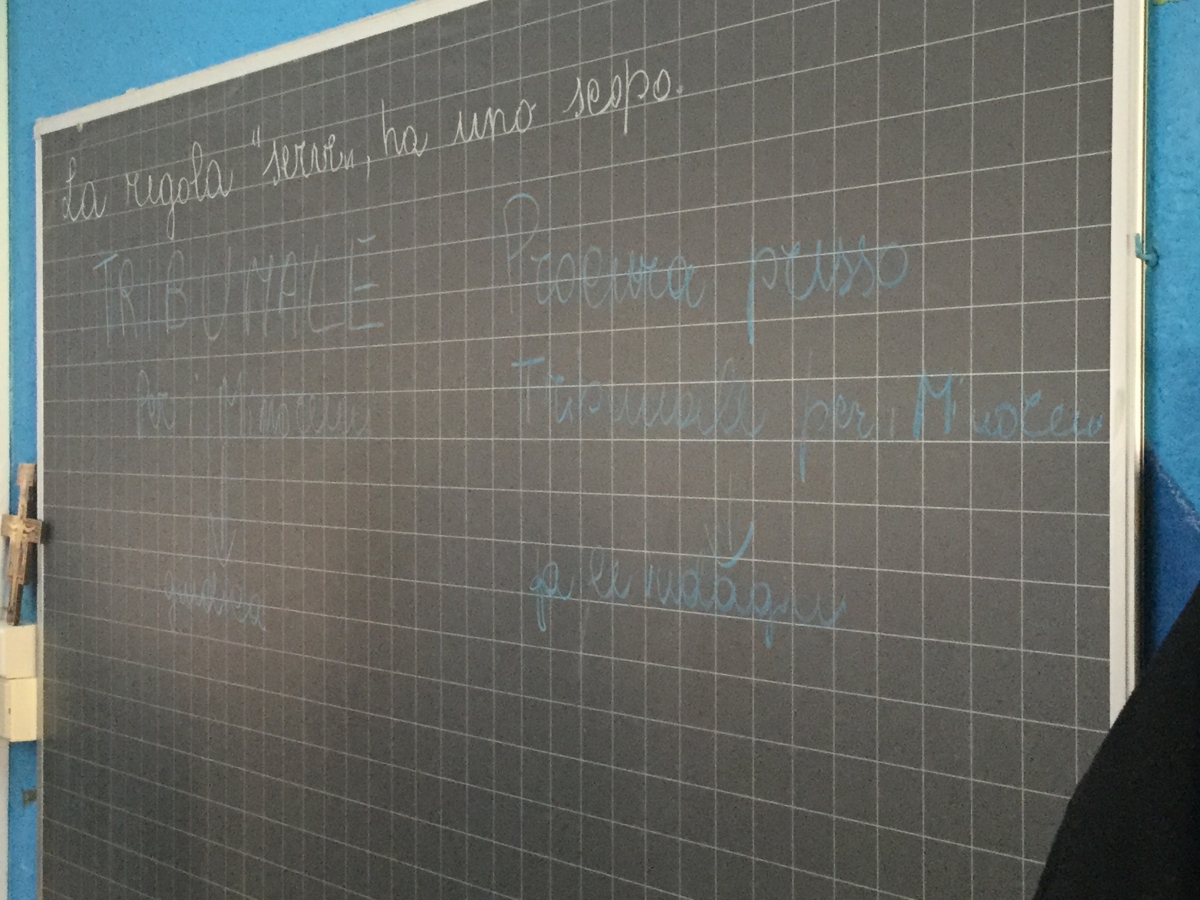 La regola "serve", ha uno scopo.
TRIBUNALE
Procura presso
per i Minorenni
Tribunale per i Minorenni
giudica
fa le indagini